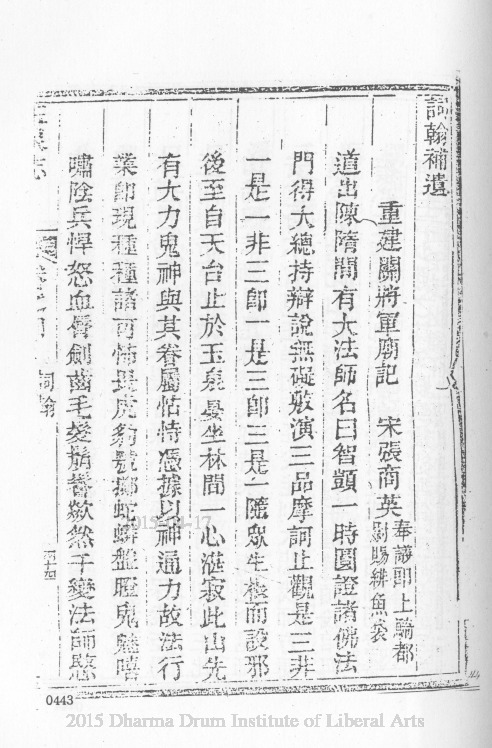 詞翰補遺
重建關將軍廟記 宋張商英 奉議郎上騎都尉賜緋魚袋
道出陳隋間有大法師名曰智顗一時圓證諸佛法
門得大總持辯說無礙敷演三品摩訶止觀是三非
一是一非三即一是三即三是一隨眾生根而設邪
後至自天台止於玉泉晏坐林間一心湛寂此山先
有大力鬼神與其眷屬怙恃憑據以神通力故法行
業即現種種諸可怖畏虎豹號擲蛇蟒盤瞪鬼魅嘻
嘯陰兵悍怒血唇劍齒毛髮鬅鬙歘然千變法師愍
玉泉志
詞翰
四十四
0443
2015-04-17
2015 Dharma Drum Institute of Liberal Arts